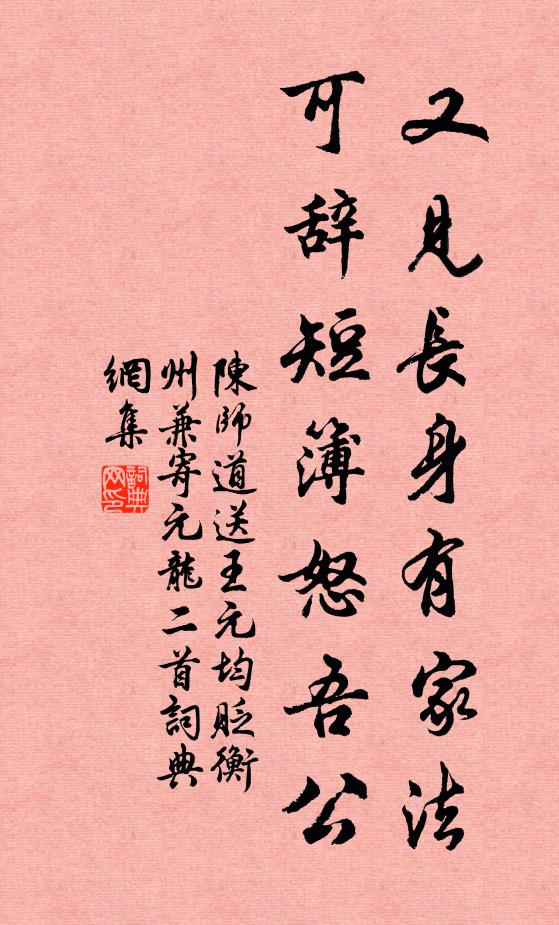 又見長身有家法
可辞短簿怒吾公
陳師道送王元均貶衡
州兼寄元龍二首詞典
網集
詞典
网印